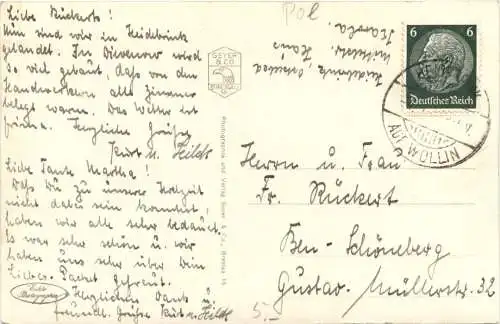 Liebe Rückerts!
Nun sind wir in Heidebrink
gelandet. In Dievenow wird
so viel gebaut, daß von den
Handwerkern alle Zimmer
belegt waren. Das Wetter ist
prima. Herzliche Grüße
Kurt u. Hilde
Liebe Tante Martha!
Daß Du zu unserer Hochzeit
nicht dabei sein konntest,
haben wir alle sehr bedauert.
Es war sehr schön u. wir
haben uns sehr über Dein
liebes Packet gefreut.
Herzlichen Dank u.
freundl. Grüße Kurt u. Hilde
Echte Photographie
GEYER & CO
BRESLAU
Photographie und Verlag Geyer & Co., Breslau 16
Pol
Heidebrink, Ostseebad
Haus
6 6
Deutsches Reich
AUF WOLLIN
Herrn u. Frau
Fr. Rückert
Bln-Schöneberg
Gustav-Müllerstr. 32
5.-